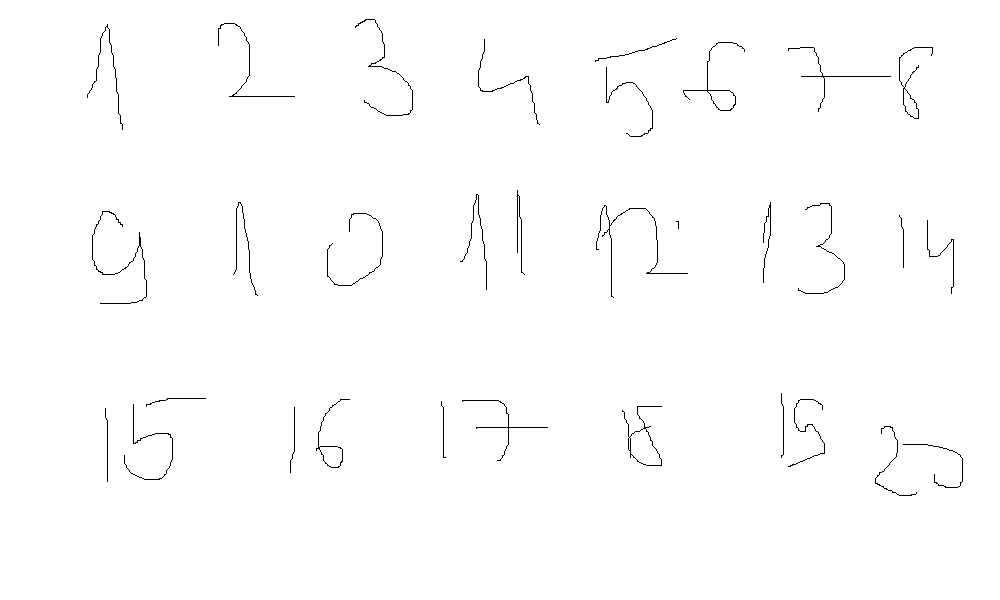 1 2 3 4 5 6 7 8
9 10 11 12 13 14
15 16 17 18 19 20